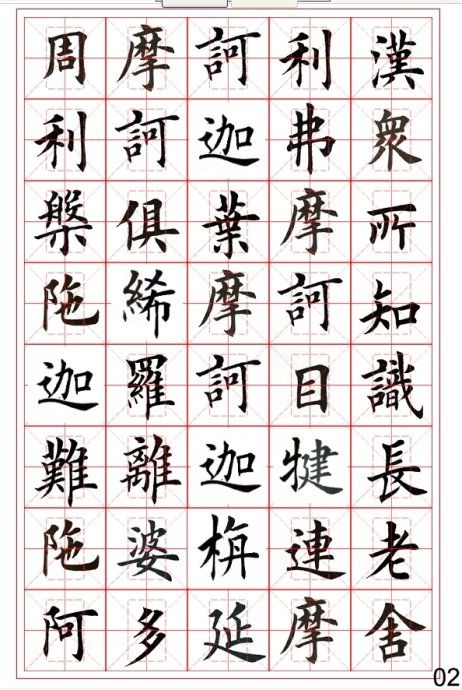 漢衆所知識長老舍
利弗摩訶目犍連摩
訶迦葉摩訶迦栴延
摩訶俱絺羅離婆多
周利槃陁迦難陁阿
02